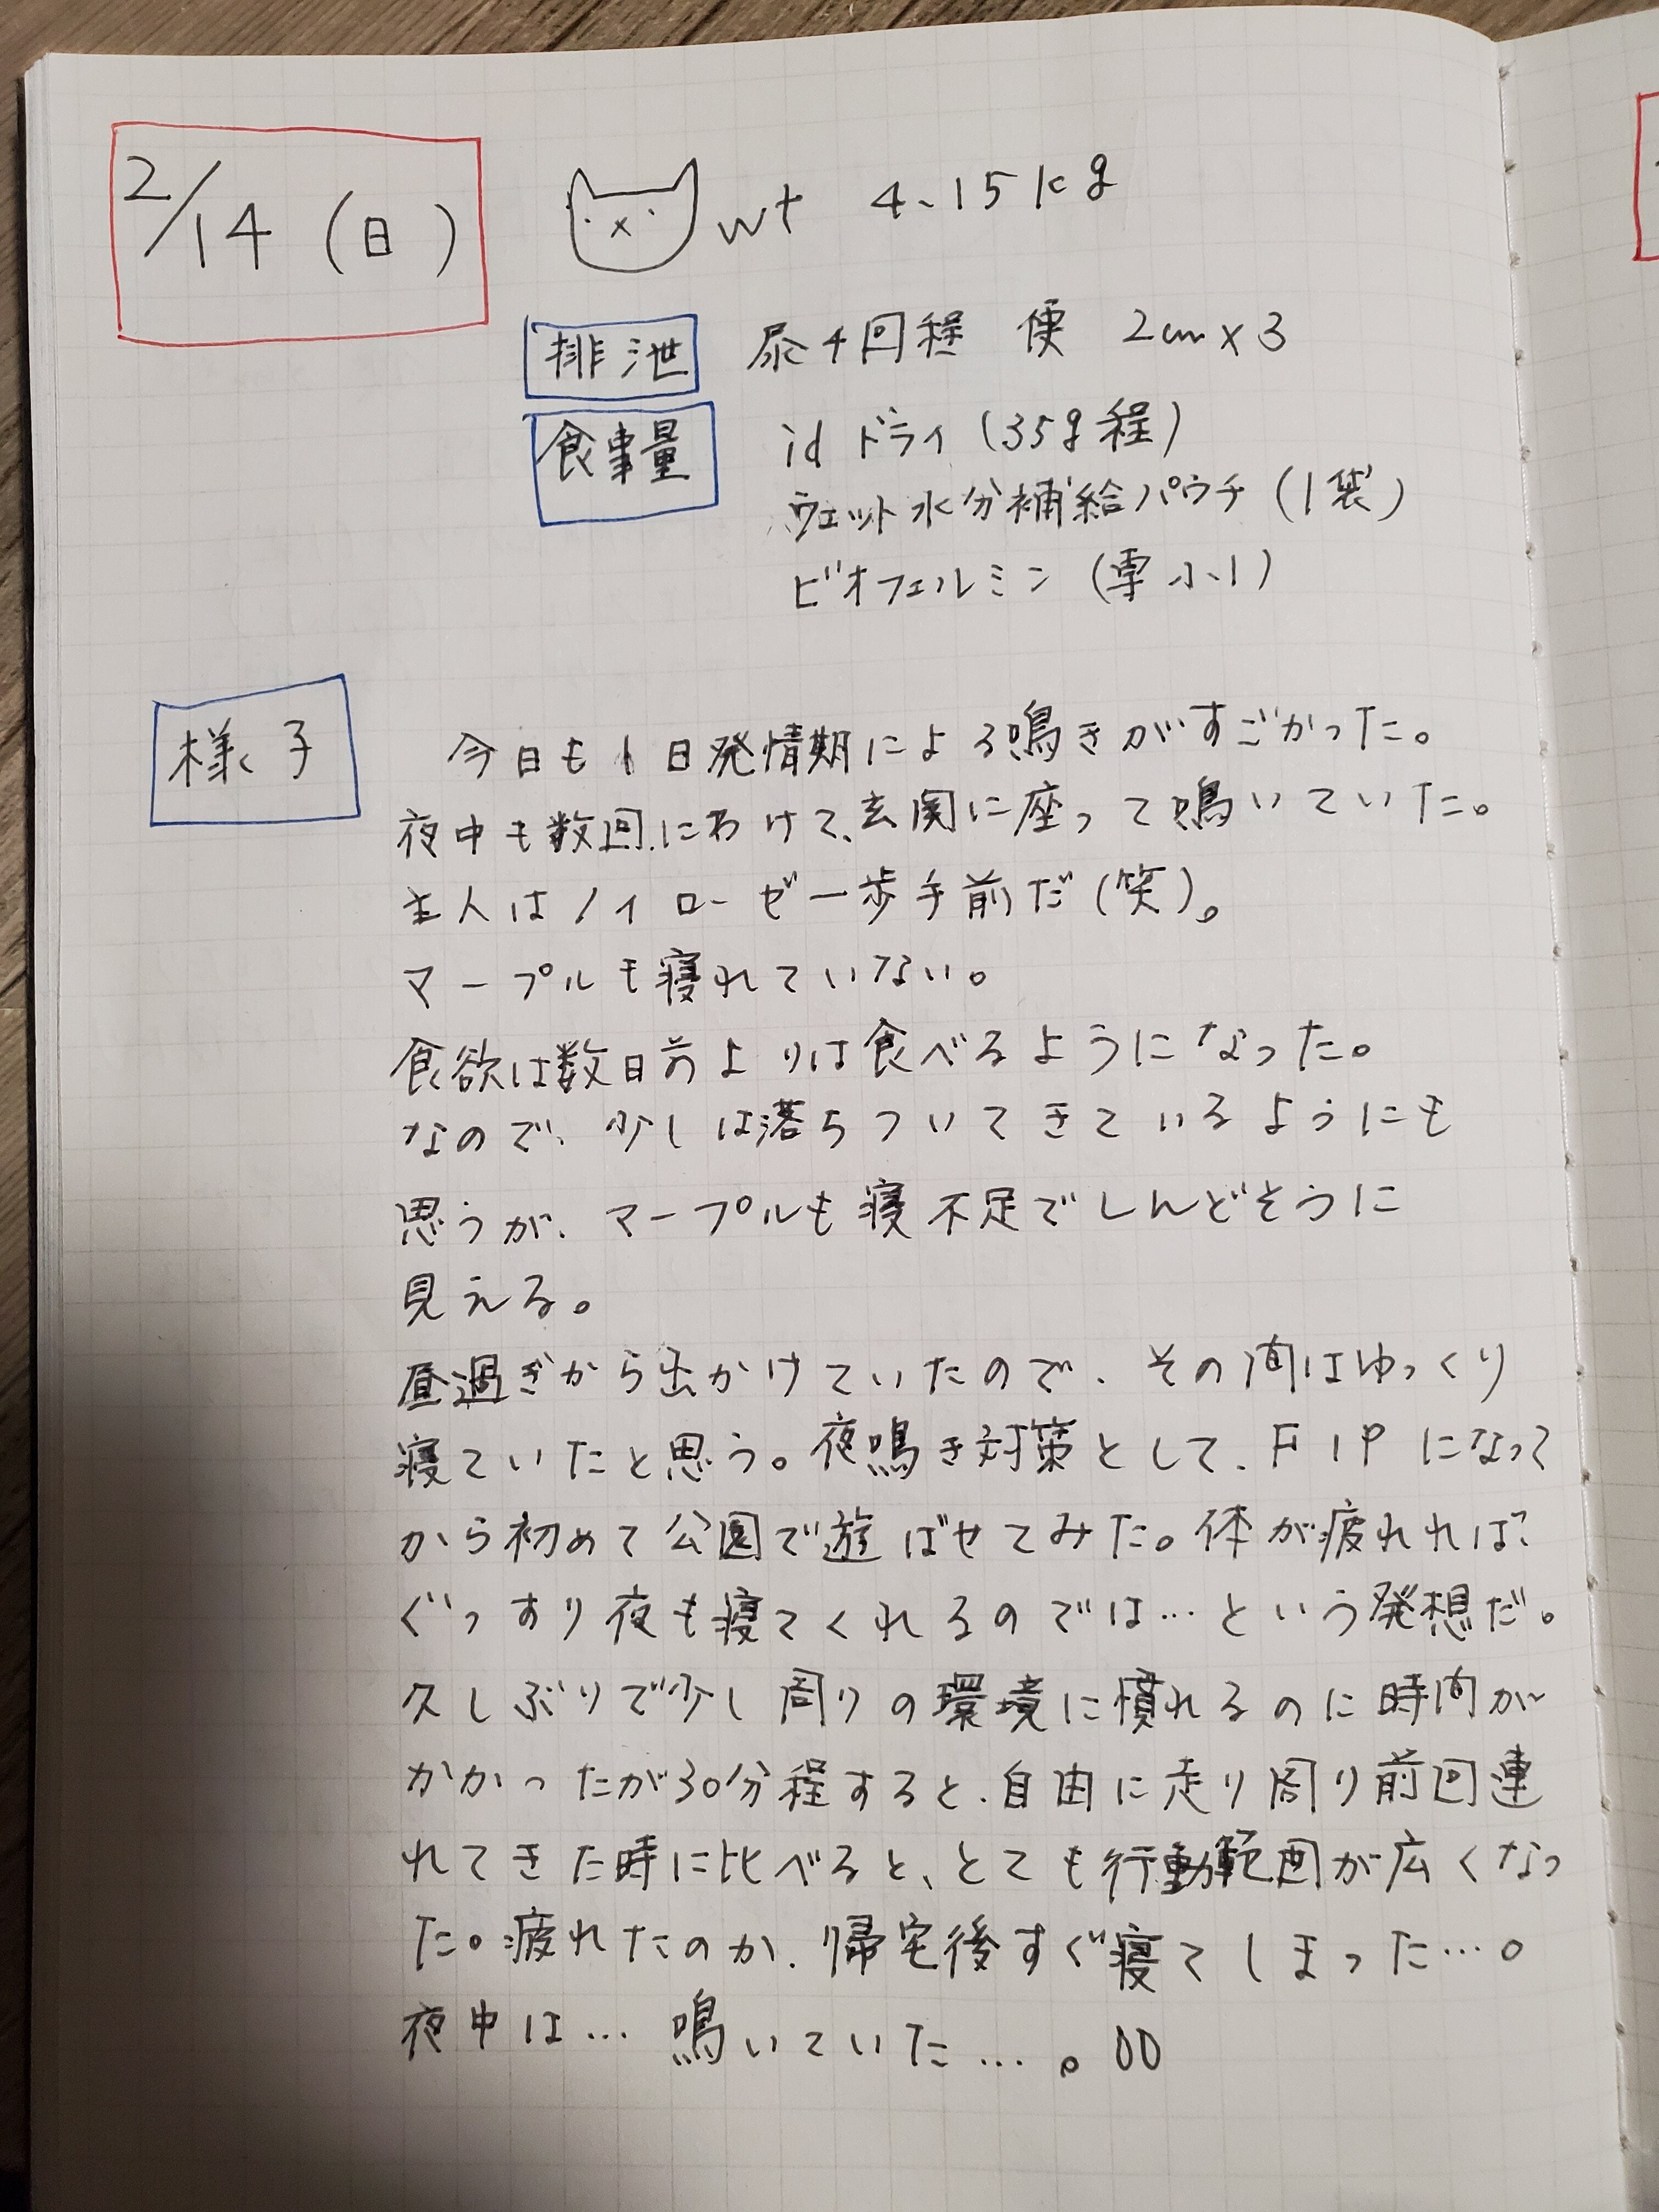 2/14(日)
wt 4.15kg
排泄 尿4回程 便 2cm×3
食事量 id ドライ(35g程)
ウェット水分補給パウチ(1袋)
ビオフェルミン(専小1)
様子 今日も1日発情期による鳴きがすごかった。
夜中も数回にわけて、玄関に座って鳴いていた。
主人はノイローゼ一歩手前だ(笑)。
マープルも寝れていない。
食欲は数日前よりは食べるようになった。
なので、少しは落ちついてきているようにも
思うが、マープルも寝不足でしんどそうに
見える。
昼過ぎから出かけていたので、その間はゆっくり
寝ていたと思う。夜鳴き対策として、FIPになって
から初めて公園で遊ばせてみた。体が疲れれば
ぐっすり夜も寝てくれるのでは…という発想だ。
久しぶりで少し周りの環境に慣れるのに時間が
かかったが30分程すると、自由に走り周り前回連
れてきた時に比べると、とても行動範囲が広くなっ
た。疲れたのか、帰宅後すぐ寝てしまった…。
夜中は… 鳴いていた…。